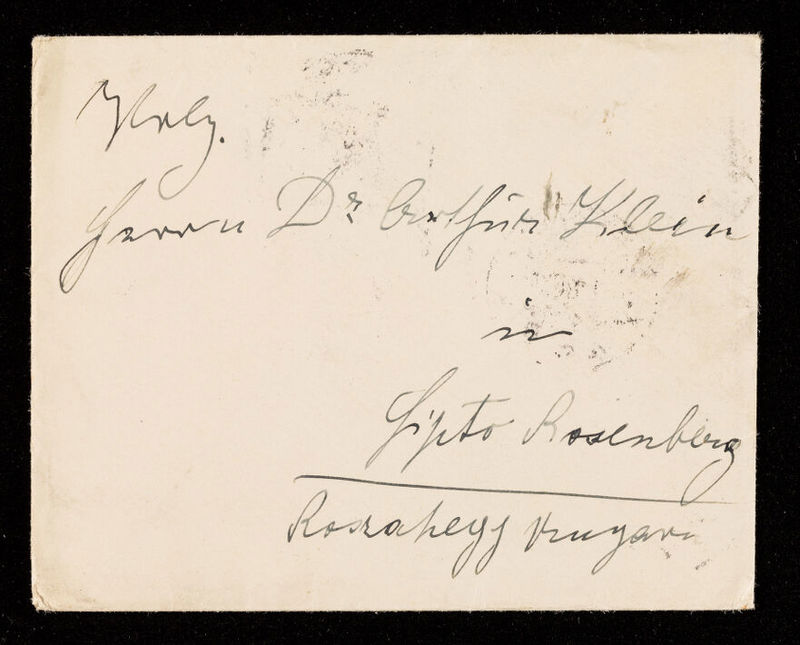 Herrn Dr Arthur Klein
in
Lipto Rosenberg
Roszahegy Ungarn